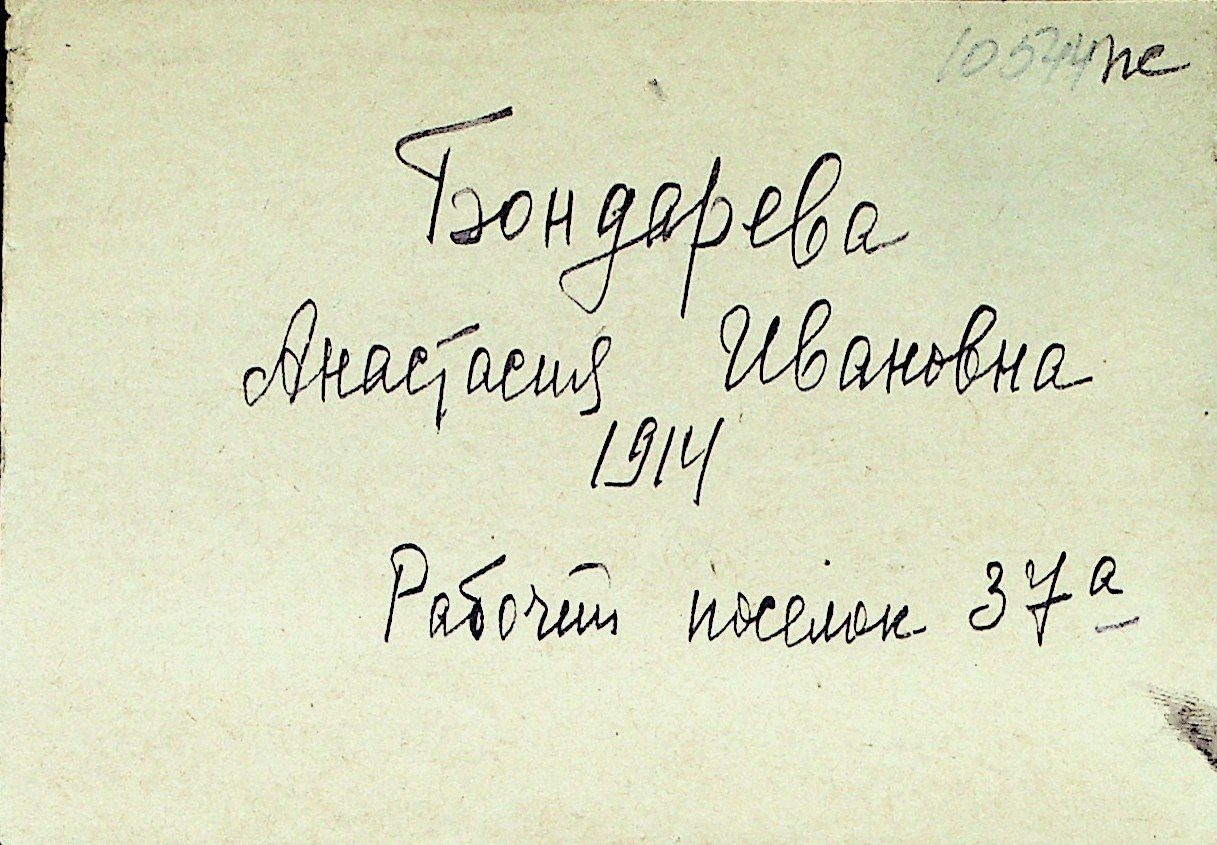 10544 пс
Бондарева
Анастасия Ивановна
1914
Рабочий посёлок 37а